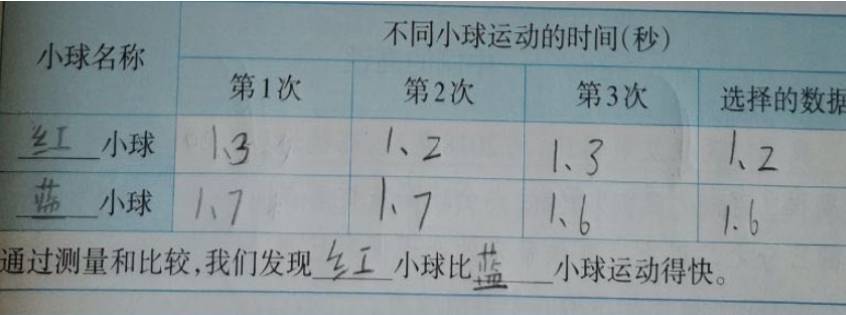 小球名称 不同小球运动的时间(秒)
第1次 第2次 第3次 选择的数据
红小球 1、3 1、2 1、3 1、2
蓝小球 1、7 1、7 1、6 1.6
通过测量和比较,我们发现红小球比蓝小球运动得快。